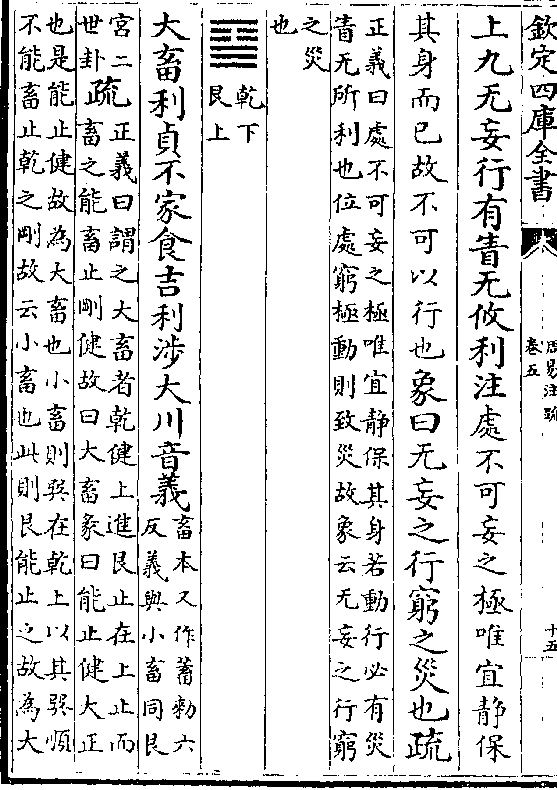 欽定四庫全書
周易注疏
卷五
十五
上九无妄行有眚无攸利注處不可妄之極唯宜靜保
其身而已故不可以行也象曰无妄之行窮之災也疏
正義曰處不可妄之極唯宜靜保其身若動行必有災
眚无所利也位處窮極動則致災故象云无妄之行窮
之災
也
乾下
艮上
大畜利貞不家食吉利涉大川音義
畜本又作蓄勑六
反義與小畜同艮
宮二
世卦
疏
正義曰謂之大畜者乾健上進艮止在上止而
畜之能畜止剛健故曰大畜彖曰能止健大正
也是能止健故為大畜也小畜則巽在乾上以其巽順
不能畜止乾之剛故云小畜也此則艮能止之故為大